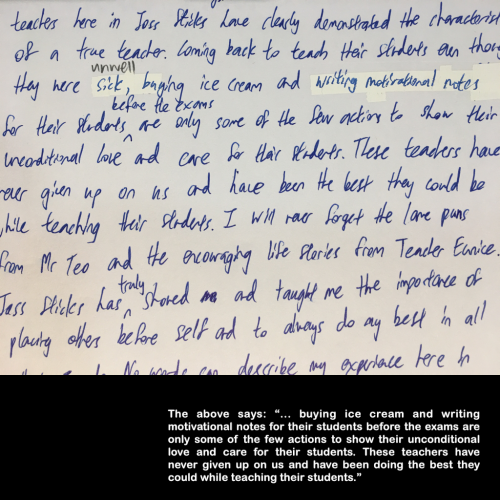 teachers here in Joss Sticks have clearly demonstrated the characterist
of a true teacher. Coming back to teach their students even thou
unwell
they were sick, buying ice cream and writing motivational notes
before the exams
for their students, are only some of the few actions to show their
unconditional love and care for their students. These teachers have
never given up on us and have been the best they could be
while teaching their students. I will never forget the lame puns
from Mr Teo and the encouraging life stories from Teacher Eunice.
truly
Joss Sticks has shared and taught me the importance of
placing others before self and to always do my best in all
No words can describe my experience here in
The above says: “... buying ice cream and writing
motivational notes for their students before the exams are
only some of the few actions to show their unconditional
love and care for their students. These teachers have
never given up on us and have been doing the best they
could while teaching their students.”